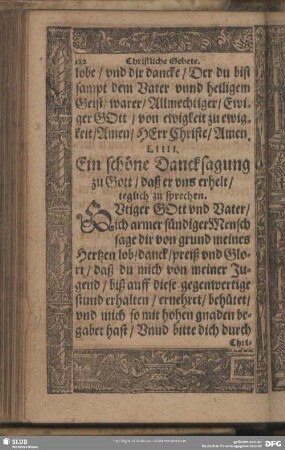 122 Christliche Gebete.
lobe / vnd dir dancke / Der du bist
sampt dem Vater vnnd heiligem
Geist / warer / Allmechtiger / Ewi-
ger GOtt / von ewigkeit zu ewig-
keit / Amen / HErr Christe / Amen.
LIIII.
Ein schöne Dancksagung
zu Gott / daß er vns erhelt /
teglich zu sprechen.
GVtiger GOtt vnd Vater /
ich armer sündiger Mensch
sage dir von grund meines
Hertzen lob / danck / preiß vnd Glo-
ri / daß du mich von meiner Ju-
gend / biß auff diese gegenwertige
stund erhalten / ernehret / behütet /
vnd mich so mit hohen gnaden be-
gabet hast / Vnnd bitte dich durch
Chri-
SLUB
DFG